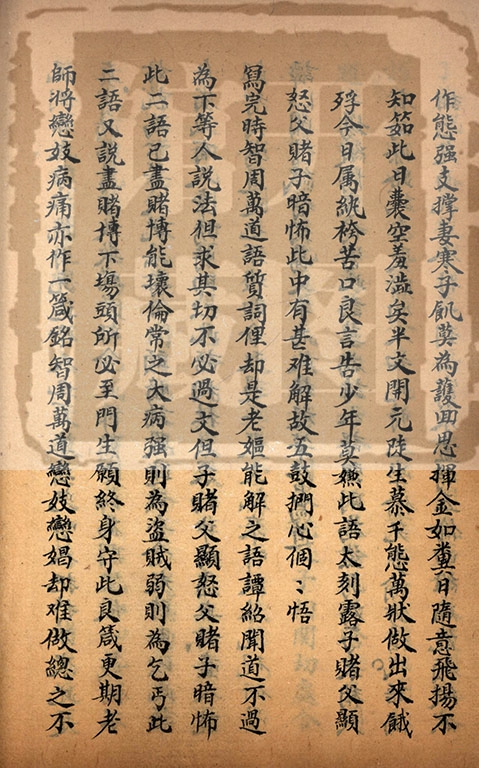 作態强支撑妻寒子飢莫為護回思揮金如糞日隨意飛揚不
知茹此日囊空羞澁矣半文開元陡生慕千態萬狀做出來餓
殍今日属紈袴苦口良言告少年莫嫌此語太刻露子賭父顯
怒父賭子暗怖此中有甚难解故五鼓捫心個〻悟
寫完時智周萬道語質詞俚却是老嫗能解之語譚紹聞道不過
為下等人説法但求其切不必過文但子賭父顯怒父賭子暗怖
此二語已盡賭博能壞倫常之大病强則為盜賊弱則為乞丐此
二語又説盡賭博下塲頭所必至門生願終身守此良箴更期老
師將戀妓病痛亦作一箴銘智周萬道戀妓戀娼却难做總之不